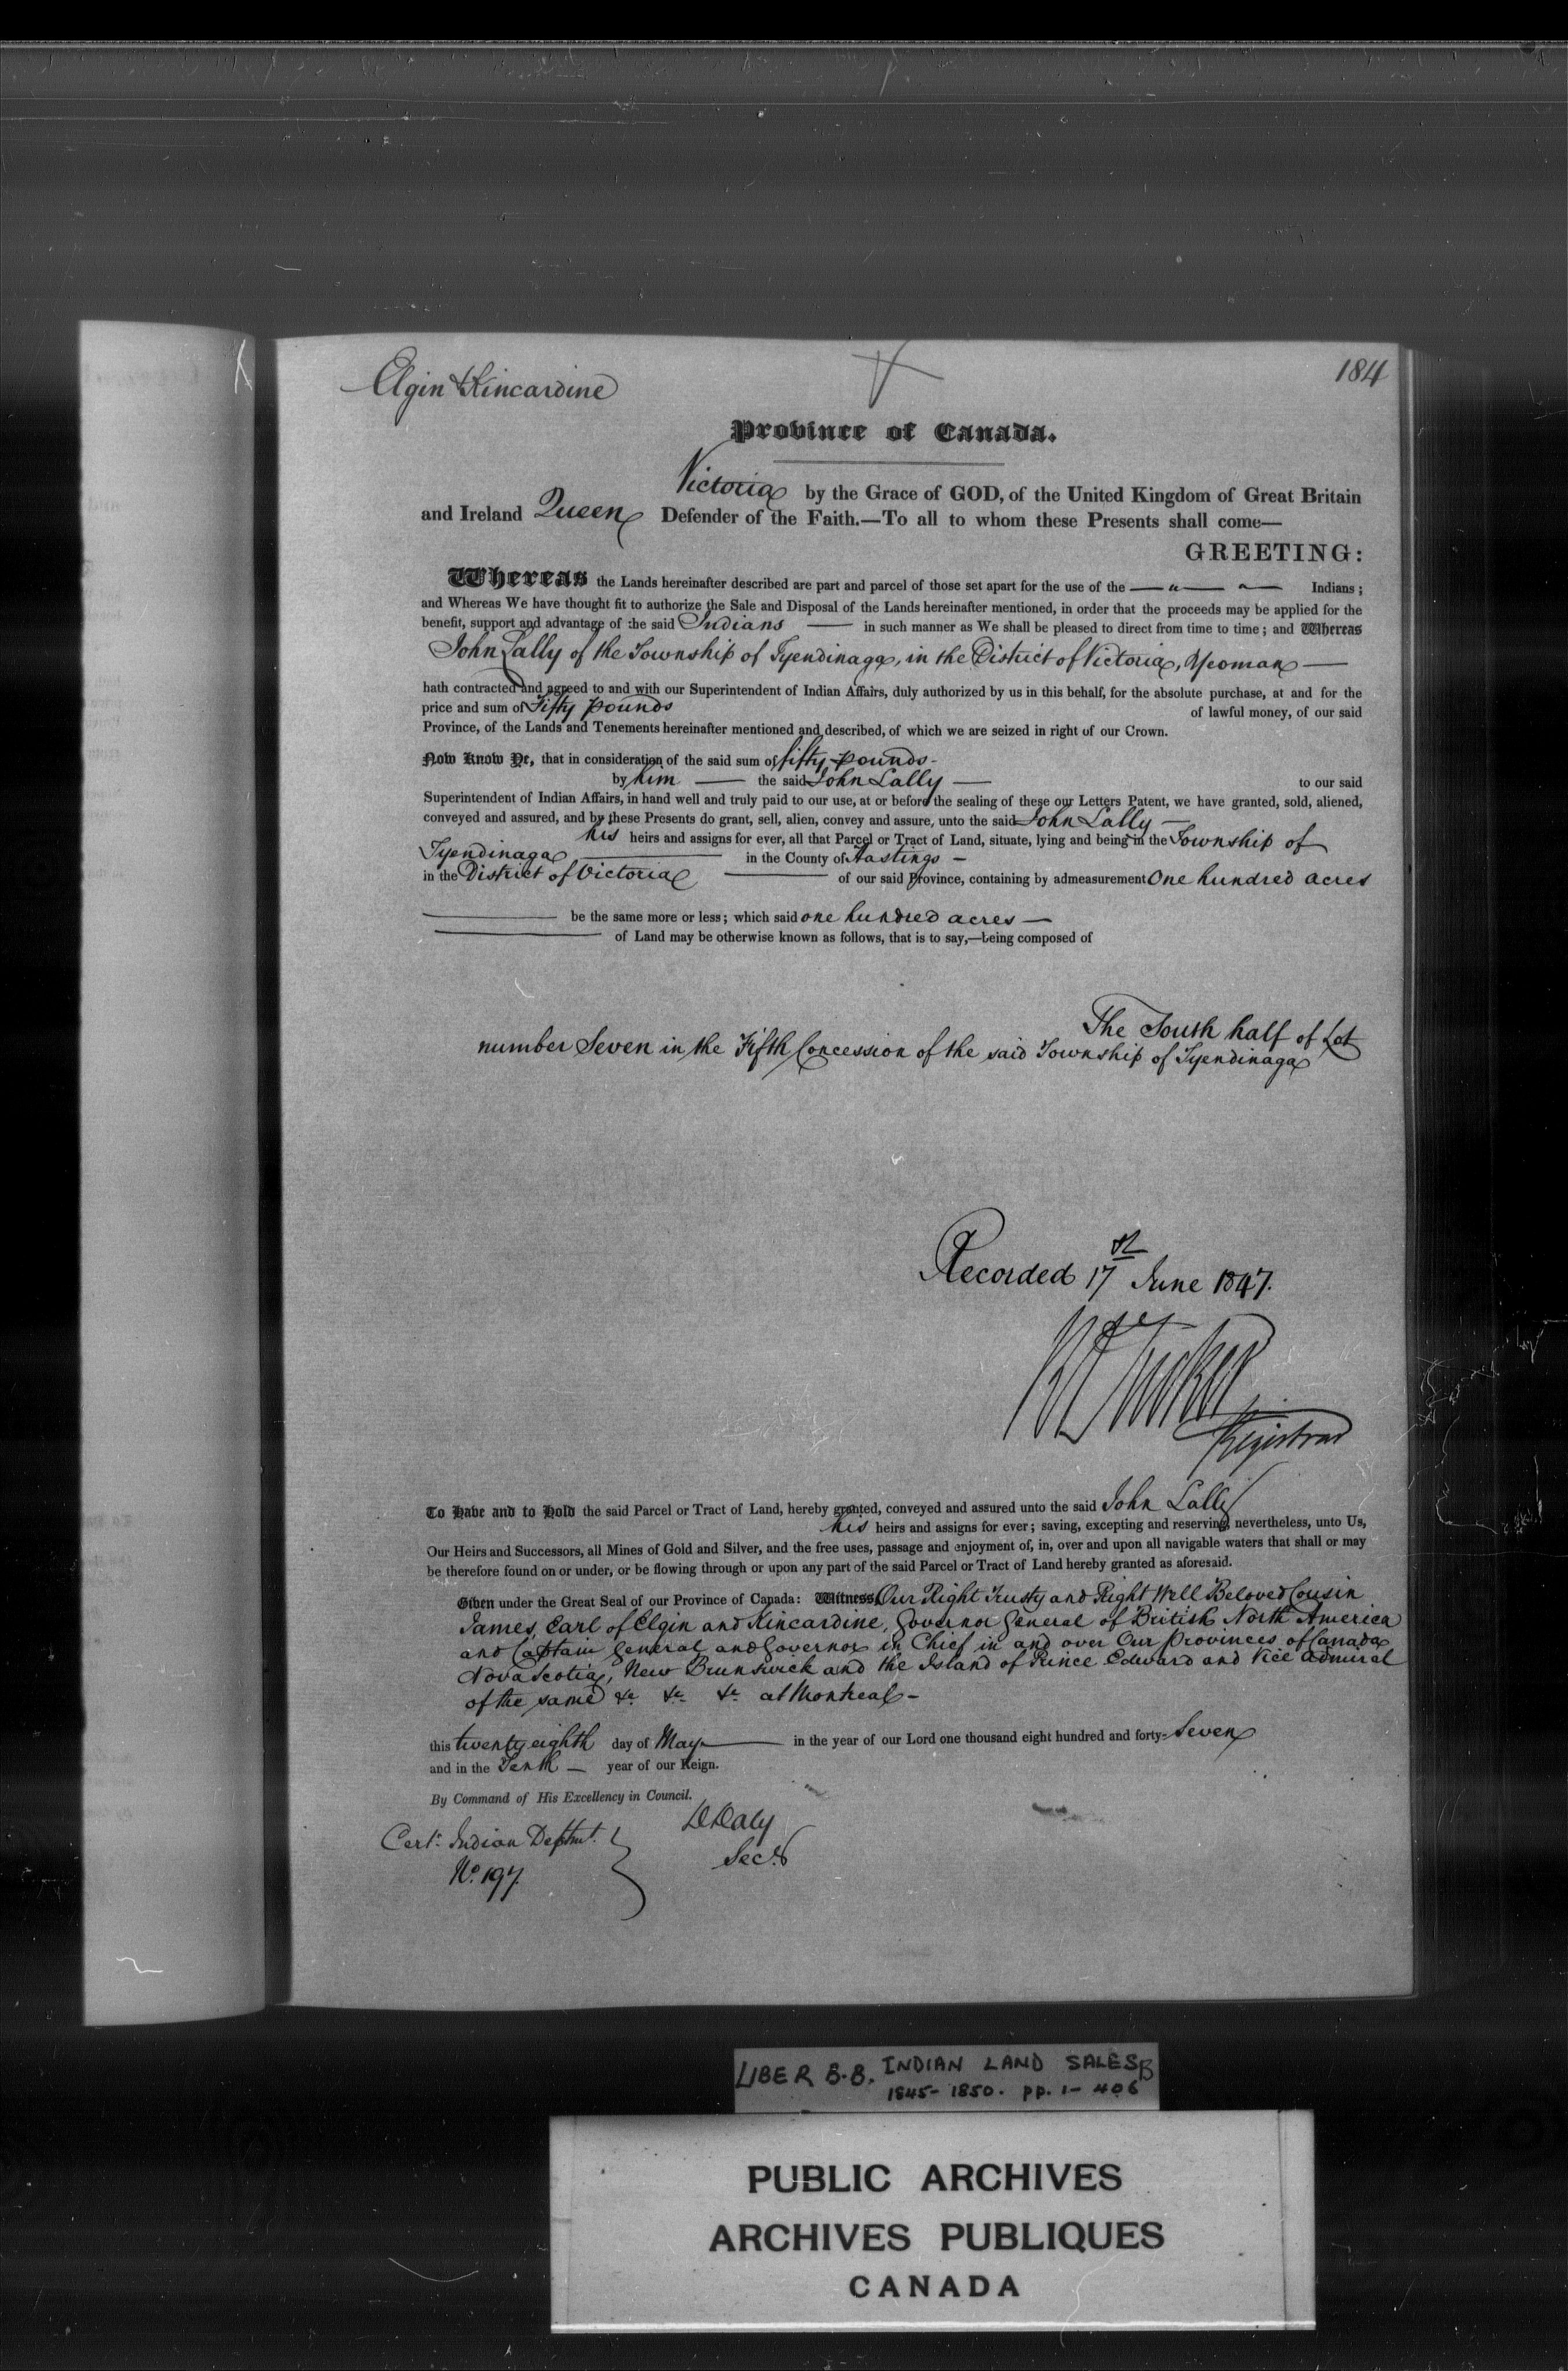 Elgin & Kincardine
184
Province of Canada.
Victoria by the Grace of GOD, of the United Kingdom of Great Britain
and Ireland Queen Defender of the Faith.—To all to whom these Presents shall come—
GREETING:
Whereas the Lands hereinafter described are part and parcel of those set apart for the use of the — " — " — Indians;
and Whereas We have thought fit to authorize the Sale and Disposal of the Lands hereinafter mentioned, in order that the proceeds may be applied for the
benefit, support and advantage of the said Indians — in such manner as We shall be pleased to direct from time to time; and Whereas
John Lally of the Township of Tyendinaga, in the District of Victoria, Yeoman —
hath contracted and agreed to and with our Superintendent of Indian Affairs, duly authorized by us in this behalf, for the absolute purchase, at and for the
price and sum of Fifty pounds of lawful money, of our said
Province, of the Lands and Tenements hereinafter mentioned and described, of which we are seized in right of our Crown.
Now Know Ye, that in consideration of the said sum of fifty pounds -
by him — the said John Lally — to our said
Superintendent of Indian Affairs, in hand well and truly paid to our use, at or before the sealing of these our Letters Patent, we have granted, sold, aliened,
conveyed and assured, and by these Presents do grant, sell, alien, convey and assure, unto the said John Lally —
his heirs and assigns for ever, all that Parcel or Tract of Land, situate, lying and being in the Township of
Tyendinaga — in the County of Hastings —
in the District of Victoria — of our said Province, containing by admeasurement One hundred acres
— be the same more or less; which said one hundred acres —
— of Land may be otherwise known as follows, that is to say,—being composed of
The South half of Lot
number Seven in the Fifth Concession of the said Township of Tyendinaga
Recorded 17th June 1847.
Tucker
Registrar
To Have and to Hold the said Parcel or Tract of Land, hereby granted, conveyed and assured unto the said John Lally
his heirs and assigns for ever; saving, excepting and reserving, nevertheless, unto Us,
Our Heirs and Successors, all Mines of Gold and Silver, and the free uses, passage and enjoyment of, in, over and upon all navigable waters that shall or may
be therefore found on or under, or be flowing through or upon any part of the said Parcel or Tract of Land hereby granted as aforesaid.
Given under the Great Seal of our Province of Canada: Witness, Our Right Trusty and Right Well Beloved Cousin
James, Earl of Elgin and Kincardine, Governor General of British North America
and Captain General and Governor in Chief in and over Our Provinces of Canada
Nova Scotia, New Brunswick and the Island of Prince Edward and Vice Admiral
of the same &c &c &c at Montreal -
this twenty eighth day of May — in the year of our Lord one thousand eight hundred and forty-Seven
and in the Tenth — year of our Reign.
By Command of His Excellency in Council.
D Daly
Secy
Cert. Indian Deptmt.
No. 197.
LIBER B.B. INDIAN LAND SALES B
1845-1850. pp. 1-406
PUBLIC ARCHIVES
ARCHIVES PUBLIQUES
CANADA